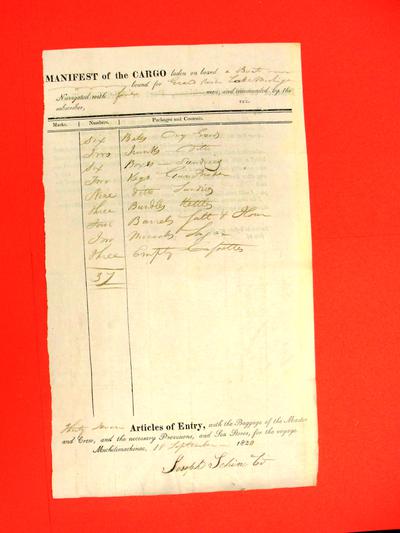 MANIFEST of the CARGO laden on board a Boat
bound for Grand River Lake Michigan
Navigated with four men, and commanded by the
subscriber, viz.
Marks. Numbers. Packages and Contents.
Six Bales Dry Goods
Two Trunks Ditto
Six Boxes Sundries
Four Kegs Gunpowder
Nine ditto Sundries
Three Bundles Kettles
Four Barrels Salt & Flour
Two Mococks Sugar
Three Empty Cassettes
37
Thirty Seven Articles of Entry, with the Baggage of the Master
and Crew, and the necessary Provisions, and Sea Stores, for the voyage.
Michilimackinac, 18 September 1820
Joseph